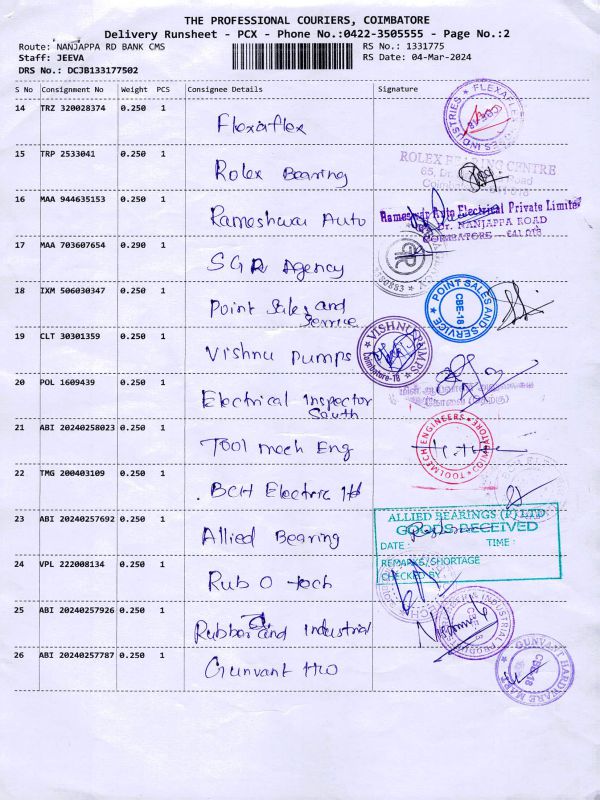 THE PROFESSIONAL COURIERS, COIMBATORE
Delivery Runsheet - PCX - Phone No.:0422-3505555 - Page No.:2
Route: NANJAPPA RD BANK CMS
RS No.: 1331775
Staff: JEEVA
RS Date: 04-Mar-2024
DRS No.: DCJB133177502
S No Consignment No Weight PCS Consignee Details Signature
14 TRZ 320028374 0.250 1
Flexaflex
FLEXAFLEX INDUSTRIES
15 TRP 2533041 0.250 1
Rolex Bearing
ROLEX BEARING CENTRE
16 MAA 944635153 0.250 1
Rameshwar Auto
Rameswar Auto Electrical Private Limited
Dr. NANJAPPA ROAD
COIMBATORE - 641 018
17 MAA 703607654 0.290 1
SGR Agency
18 IXM 506030347 0.250 1
Point Sales and
Service
POINT SALES AND SERVICE
CBE-18
19 CLT 30301359 0.250 1
Vishnu Pumps
VISHNU PUMPS
Coimbatore-18
20 POL 1609439 0.250 1
Electrical Inspector
South
21 ABI 20240258023 0.250 1
Tool mech Eng
TOOLMECH ENGINEERS
COIMBATORE
22 TMG 200403109 0.250 1
BCH Electric ltd
23 ABI 20240257692 0.250 1
Allied Bearing
ALLIED BEARINGS (P) LTD
GOODS RECEIVED
DATE : TIME :
REMARKS/SHORTAGE
CHECKED BY
24 VPL 222008134 0.250 1
Rub O tech
25 ABI 20240257926 0.250 1
Rubber and Industrial
26 ABI 20240257787 0.250 1
Gunvant H/O
GUNVANT HARDWARE MART
CBE-18